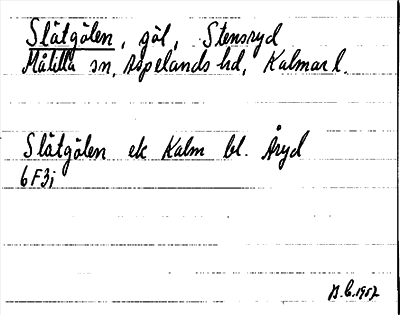 Slätgölen, göl, Stensryd
Målilla sn, Aspelands hd, Kalmar l.
Slätgölen ek Kalm bl. Åryd
6F3j
B.C. 1957